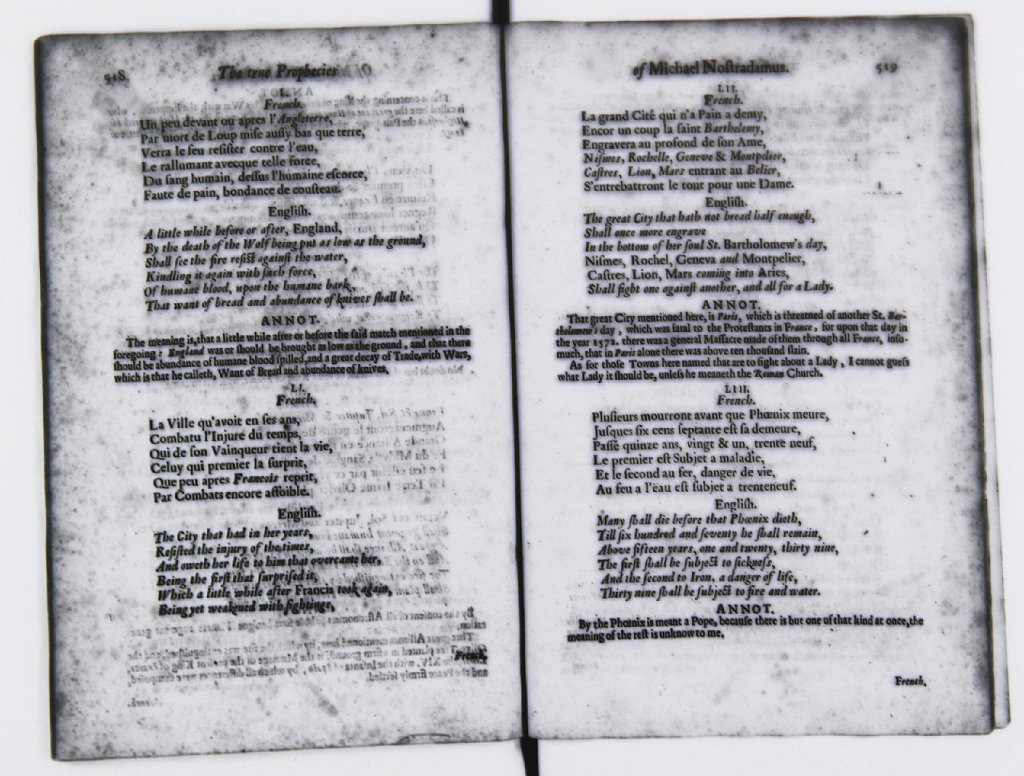 518 The true Prophecies
L.
French.
Un peu devant ou apres l'Angleterre,
Par mort de Loup mise aussy bas que terre,
Verra le feu resister contre l'eau,
Le rallumant avecque telle force,
Du sang humain, dessus l'humaine escorce,
Faute de pain, bondance de cousteau.
English.
A little while before or after, England,
By the death of the Wolf being put as low as the ground,
Shall see the fire resist against the water,
Kindling it again with such force,
Of humane blood, upon the humane bark,
That want of bread and abundance of knives shall be.
ANNOT.
The meaning is, that a little while after or before the said match mentioned in the
foregoing: England was or should be brought as low as the ground, and that there
should be abundance of humane blood spilled, and a great decay of Trade, with Wars,
which is that he calleth, Want of Bread and abundance of knives.
LI.
French.
La Ville qu'avoit en ses ans,
Combatu l'Injure du temps,
Qui de son Vainqueur tient la vie,
Celuy qui premier la surprit,
Que peu apres Francois reprit,
Par Combats encore affoible.
English.
The City that had in her years,
Resisted the injury of the times,
And oweth her life to him that overcame her,
Being the first that surprised it,
Which a little while after Francis took again,
Being yet weakened with fightings,
French.
of Michael Nostradamus. 519
LII.
French.
La grand Cité qui n'a Pain a demy,
Encor un coup la saint Bartholemy,
Engravera au profond de son Ame,
Nismes, Rochelle, Geneve & Montpelier,
Castres, Lion, Mars entrant au Belier,
S'entrebattront le tout pour une Dame.
English.
The great City that hath not bread half enough,
Shall once more engrave
In the bottom of her soul St. Bartholomew's day,
Nismes, Rochel, Geneva and Montpelier,
Castres, Lion, Mars coming into Aries,
Shall fight one against another, and all for a Lady.
ANNOT.
That great City mentioned here, is Paris, which is threatned of another St. Bar-
tholomew's day, which was fatal to the Protestants in France, for upon that day in
the year 1572. there was a general Massacre made of them through all France, inso-
much, that in Paris alone there was above ten thousand slain.
As for those Towns here named that are to fight about a Lady, I cannot guess
what Lady it should be, unless he meaneth the Roman Church.
LIII.
French.
Plusieurs mourront avant que Phœnix meure,
Jusques six cens septante est sa demeure,
Passé quinze ans, vingt & un, trente neuf,
Le premier est Subjet a maladie,
Et le second au fer, danger de vie,
Au feu a l'eau est subjet a trenteneuf.
English.
Many shall die before that Phœnix dieth,
Till six hundred and seventy he shall remain,
Above fifteen years, one and twenty, thirty nine,
The first shall be subject to sickness,
And the second to Iron, a danger of life,
Thirty nine shall be subject to fire and water.
ANNOT.
By the Phœnix is meant a Pope, because there is but one of that kind at once, the
meaning of the rest is unknow to me.
French.